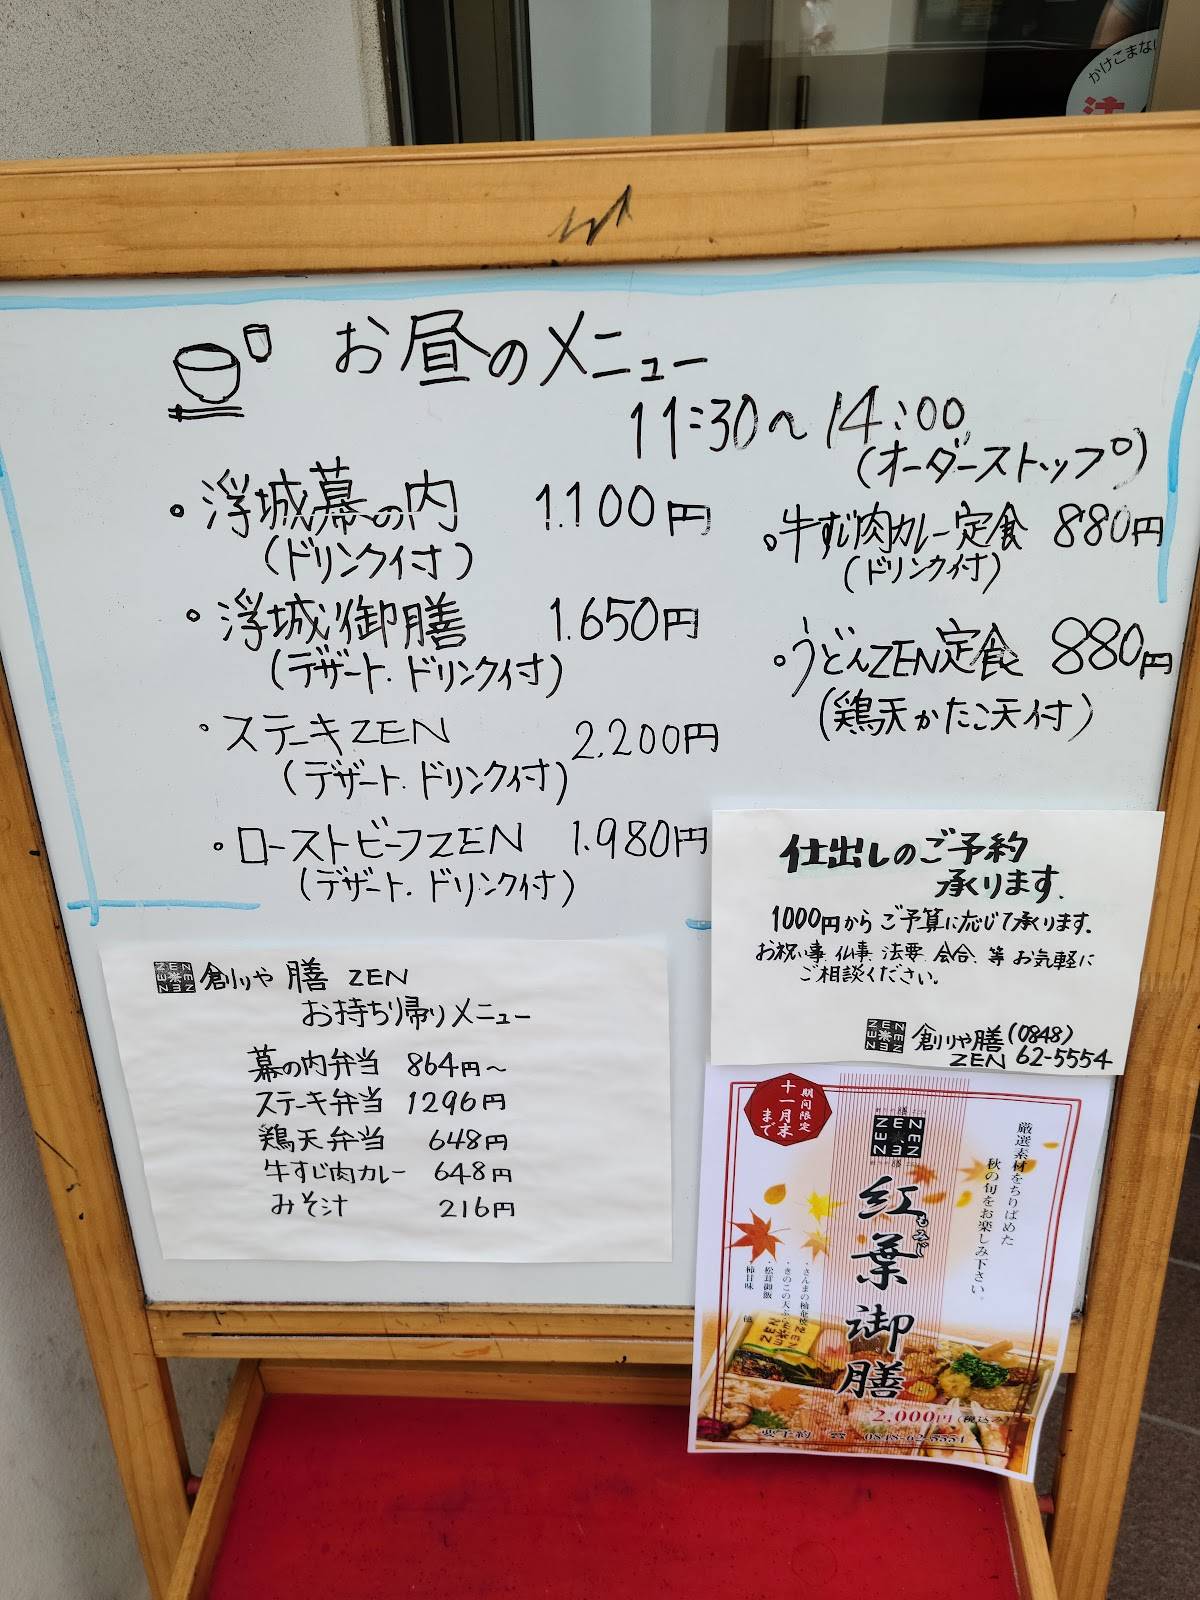 かけこまない
注
お昼のメニュー
11:30～14:00
(オーダーストップ)
・浮城幕の内 1.100円
(ドリンク付)
・浮城御膳 1.650円
(デザート.ドリンク付)
・ステーキZEN 2.200円
(デザート.ドリンク付)
・ローストビーフZEN 1.980円
(デザート.ドリンク付)
・牛すじ肉カレー定食 880円
(ドリンク付)
・うどんZEN定食 880円
(鶏天かたこ天付)
仕出しのご予約
承ります.
1000円からご予算に応じて承ります.
お祝い事.仏事.法要.会合.等 お気軽に
ご相談ください。
創りや膳 (0848)
ZEN 62-5554
創りや 膳 ZEN
お持ち帰りメニュー
幕の内弁当 864円～
ステーキ弁当 1296円
鶏天弁当 648円
牛すじ肉カレー 648円
みそ汁 216円
期間限定
十一月末
まで
ZEN
厳選素材をちりばめた
秋の旬をお楽しみ下さい。
紅葉御膳
もみじ
・さんまの柚庵焼
・きのこの天ぷら
・松茸御飯
柿甘味 他
2,000円(税込み)
要予約 ☎ 0848-62-5554